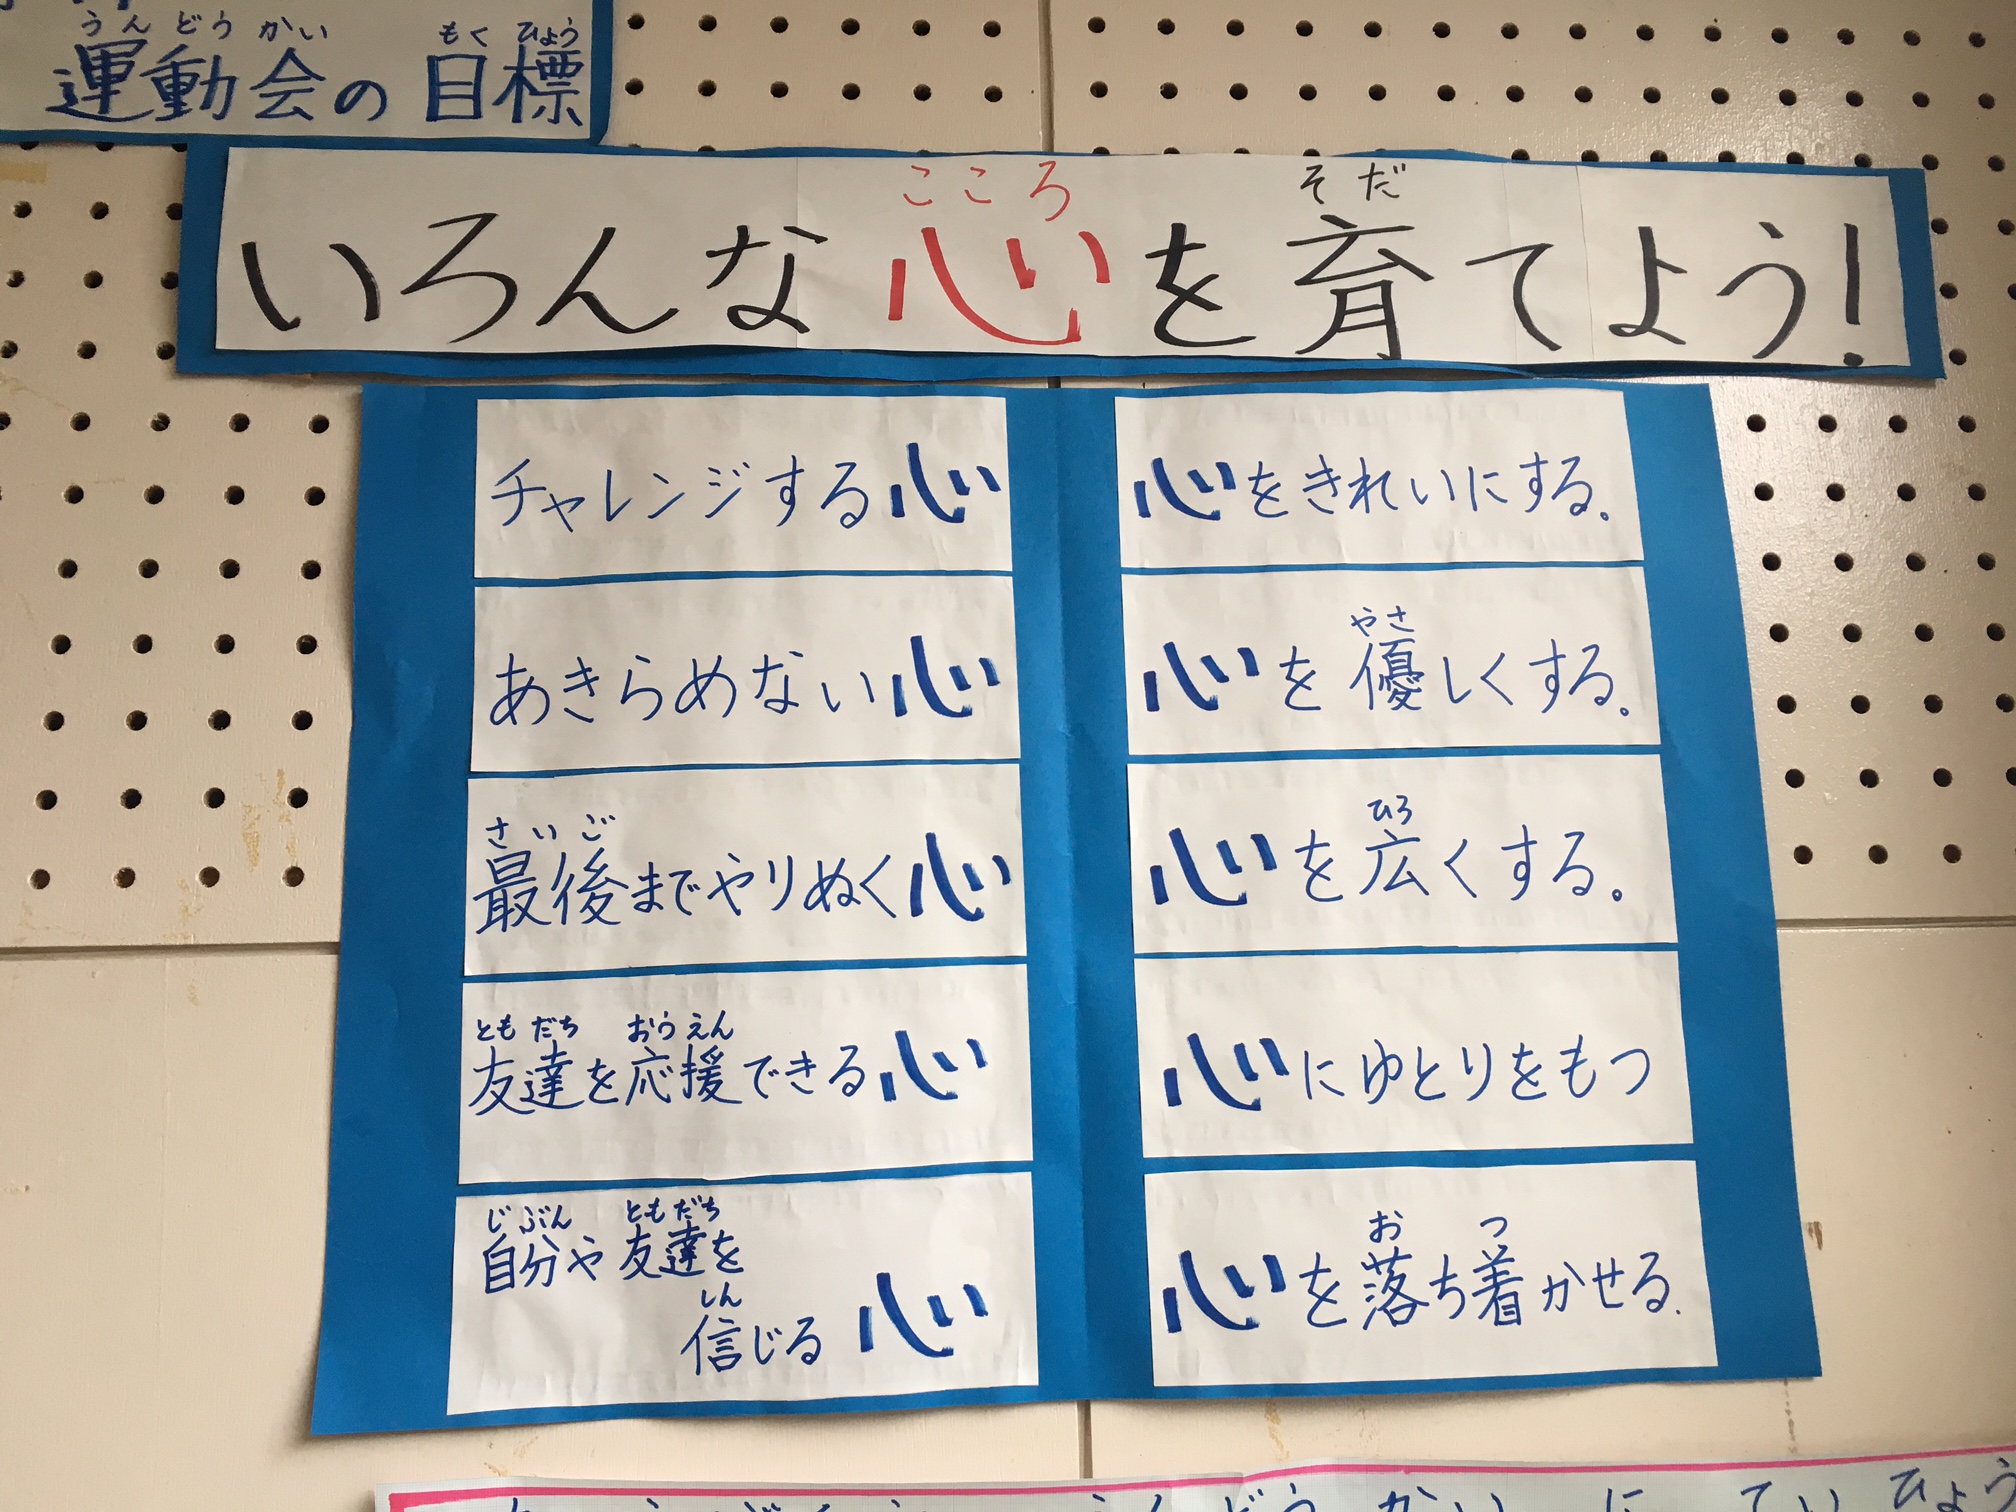 うんどうかい もくひょう
運動会の目標
こころ そだ
いろんな心を育てよう!
チャレンジする心
あきらめない心
さいご
最後までやりぬく心
ともだち おうえん
友達を応援できる心
じぶん ともだち
自分や友達を
しん
信じる心
心をきれいにする。
やさ
心を優しくする。
ひろ
心を広くする。
心にゆとりをもつ
お つ
心を落ち着かせる。